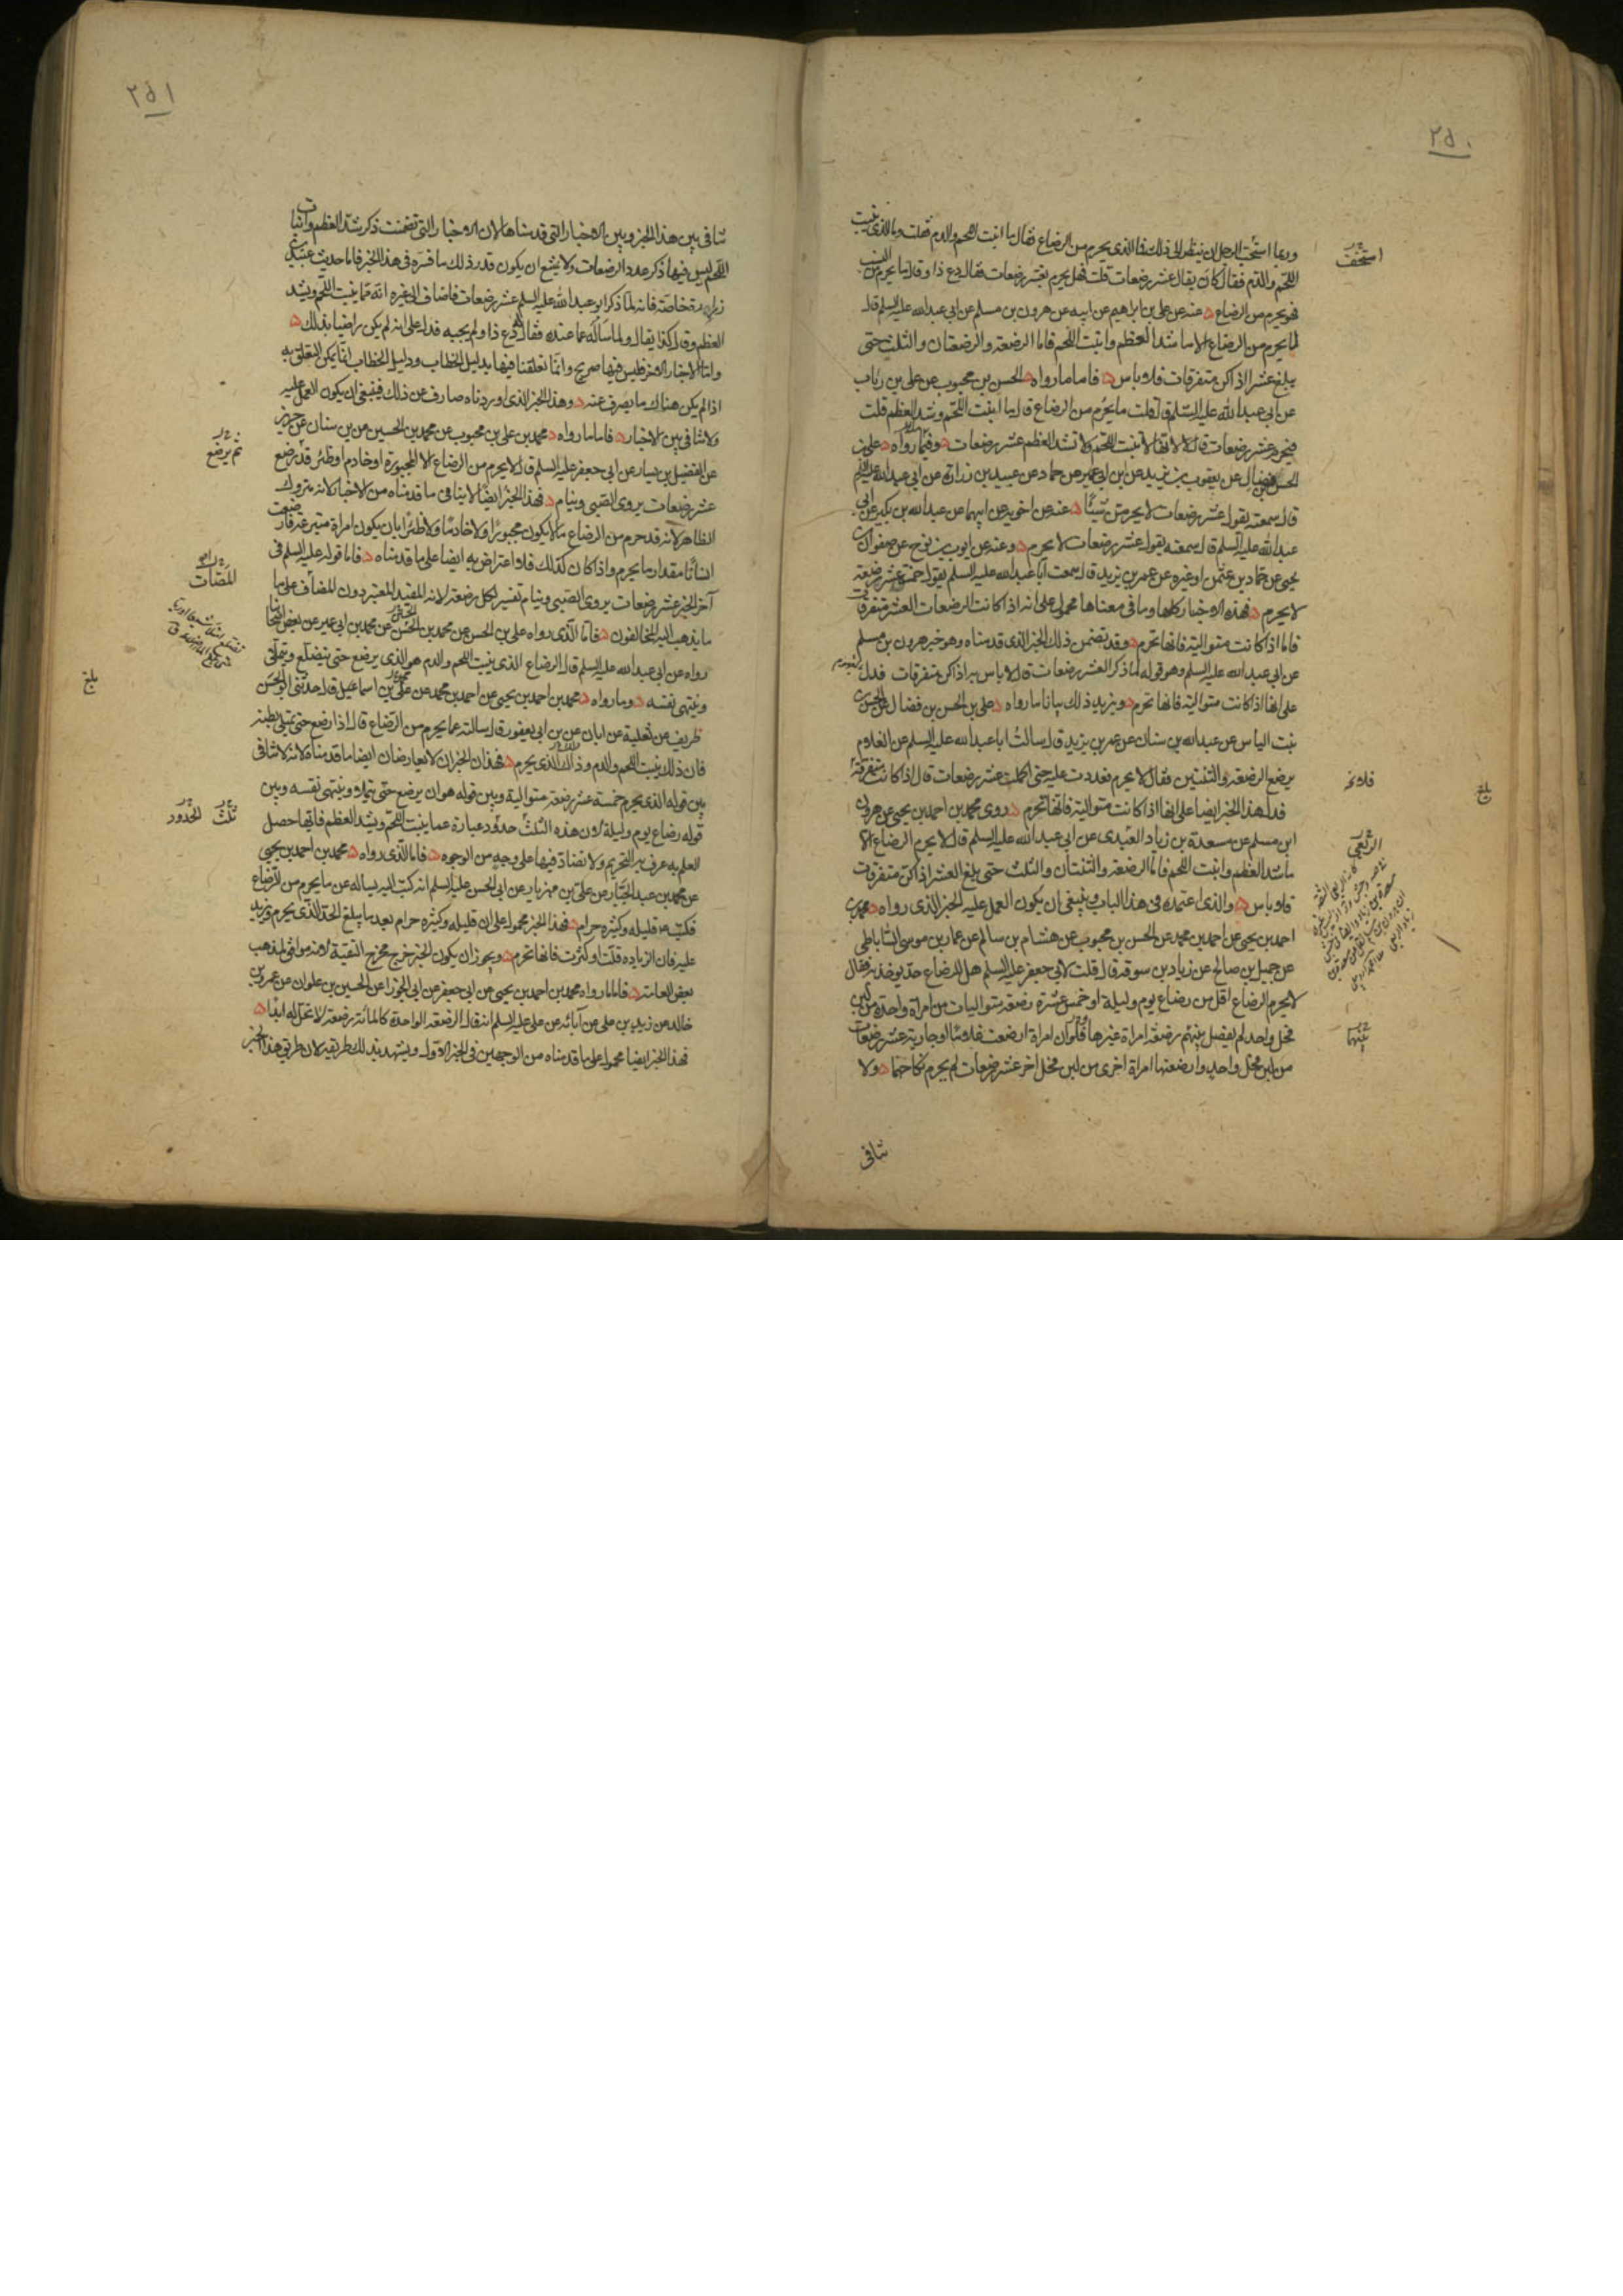 ٢٥٠
وربما استخف الرجل ان ينظر الى ذلك فما الذي يحرم من الرضاع فقال ما انبت اللحم والدم فقلت وما الذي ينبت
اللحم والدم فقال كان يقال عشر رضعات قلت فهل يحرم بعشر رضعات فقال دع ذا وقال ما يحرم من النسب
فهو يحرم من الرضاع عنه عن علي بن ابراهيم عن ابيه عن هرون بن مسلم عن ابي عبد الله عليه السلم قال
لا يحرم من الرضاع الا ما شد العظم وانبت اللحم فاما الرضعة والرضعتان والثلث حتى
يبلغ عشرا اذا كن متفرقات فلا باس فاما ما رواه الحسن بن محبوب عن علي بن رئاب
عن ابي عبد الله عليه السلم قال قلت ما يحرم من الرضاع قال ما انبت اللحم وشد العظم قلت
فيحرم عشر رضعات قال لا لانها لا تنبت اللحم ولا تشد العظم عشر رضعات وفيما رواه علي بن
الحسن بن فضال عن يعقوب بن يزيد عن بن ابي عمير عن حماد عن عبيد بن زرارة عن ابي عبد الله عليه السلم
قال سمعته يقول عشر رضعات لا يحرمن شيئا عنه عن اخويه عن ابيهما عن عبد الله بن بكير عن ابي
عبد الله عليه السلم قال سمعته يقول عشر رضعات لا يحرم وعنه عن ايوب بن نوح عن صفوان بن
يحيى عن حماد بن عثمن او غيره عن عمر بن يزيد قال سمعت ابا عبد الله عليه السلم يقول خمس عشر رضعة
لا يحرم فهذه الاخبار كلها وما في معناها محمول على انه اذا كانت الرضعات العشر متفرقات
فاما اذا كانت متوالية فانها تحرم وقد تضمن ذلك الخبر الذي قدمناه وهو خبر هرون بن مسلم
عن ابي عبد الله عليه السلم وهو قوله لما ذكر العشر رضعات قال لا باس به اذا كن متفرقات فدل
على انها اذا كانت متوالية فانها تحرم ويزيد ذلك بيانا ما رواه علي بن الحسن بن فضال عن الحسن بن
بنت الياس عن عبد الله بن سنان عن عمر بن يزيد قال سالت ابا عبد الله عليه السلم عن الغلام
يرضع الرضعة والثنتين فقال لا يحرم فعددت عليه حتى اكملت عشر رضعات قال اذا كانت متفرقة
فدل هذا الخبر ايضا على انها اذا كانت متوالية فانها تحرم روى محمد بن احمد بن يحيى عن هرون
ابن مسلم عن مسعدة بن زياد العبدي عن ابي عبد الله عليه السلم قال لا يحرم الرضاع الا
ما شد العظم وانبت اللحم فاما الرضعة والثنتان والثلث حتى بلغ العشر اذا كن متفرقات
فلا باس والذي اعتمده في هذا الباب وينبغي ان يكون العمل عليه الخبر الذي رواه محمد بن
احمد بن يحيى عن احمد بن محمد عن الحسن بن محبوب عن هشام بن سالم عن عمار بن موسى الساباطي
عن جميل بن صالح عن زياد بن سوقة قال قلت لابي جعفر عليه السلم هل للرضاع حد يوخذ به فقال
لا يحرم الرضاع اقل من رضاع يوم وليلة او خمس عشرة رضعة متواليات من امراة واحدة من لبن
فحل واحد لم يفصل بينهم رضعة امراة غيرها فلو ان امراة ارضعت غلاما او جارية عشر رضعات
من لبن فحل واحد وارضعتها امراة اخرى من لبن فحل اخر عشر رضعات لم يحرم نكاحهما ولا
تنافي
استخف
فلا تحر
بلغ
الربعي
بينها
٢٥١
تنافي بين هذا الخبر وبين الاخبار التي قدمناها لان الاخبار التي تضمنت ذكر شد العظم وانبات
اللحم ليس فيها ذكر عدد الرضعات ولا يمتنع ان يكون قدر ذلك ما فسره في هذا الخبر فاما حديث عبيد بن
زرارة خاصة فانه لما ذكر ابو عبد الله عليه السلم عشر رضعات فاضاف الى غيره انه مما ينبت اللحم ويشد
العظم وقال كذا يقال ولما ساله عما عنده فقال له دع ذا ولم يجبه فدل على انه لم يكن راضيا بذلك
واما الاخبار الاخر فليس فيها صريح وانما تعلقنا فيها بدليل الخطاب ودليل الخطاب انما يمكن التعلق به
اذا لم يكن هناك ما يصرف عنه وهذا الخبر الذي اوردناه صارف عن ذلك فينبغي ان يكون العمل عليه
ولا تنافي بين الاخبار فاما ما رواه محمد بن علي بن محبوب عن محمد بن الحسين عن بن سنان عن حريز
عن الفضيل بن يسار عن ابي جعفر عليه السلم قال لا يحرم من الرضاع الا المجبورة او خادم او ظئر قد رضع
عشر رضعات يروى الصبي وينام فهذا الخبر ايضا لا ينافي ما قدمناه من الاخبار لانه متروك
الظاهر لانه قد حرم من الرضاع ما لا يكون مجبورا ولا خادما ولا ظئرا بان يكون امراة متبرعة فارضعت
انسانا مقدار ما يحرم واذا كان كذلك فلا اعتراض به ايضا على ما قدمناه فاما قوله عليه السلم في
آخر الخبر عشر رضعات يروى الصبي وينام تفسير لكل رضعة لانه المقيد المعتبر دون المضاف على ما
ما يذهب اليه المخالفون فاما الذي رواه علي بن الحسن عن محمد بن الحسن عن محمد بن ابي عمير عن بعض اصحابنا
رواه عن ابي عبد الله عليه السلم قال الرضاع الذي ينبت اللحم والدم هو الذي يرضع حتى يتضلع ويتملى
وينتهي نفسه وما رواه محمد بن احمد بن يحيى عن احمد بن محمد عن علي بن اسماعيل قال حدثني ابو الحسن
ظريف عن ثعلبة عن ابان عن بن ابي يعفور قال سالته عما يحرم من الرضاع قال اذا رضع حتى تمتلي بطنه
فان ذلك ينبت اللحم والدم وذلك الذي يحرم فهذان الخبران لا يعارضان ايضا ما قدمناه لانه لا تنافي
بين قوله الذي يحرم خمسة عشر رضعة متوالية وبين قوله هو ان يرضع حتى يتملى وينتهي نفسه وبين
قوله رضاع يوم وليلة لان هذه الثلث حدود عبارة عما ينبت اللحم ويشد العظم فايها حصل
العلم به عرف به التحريم ولا تضاد فيها على وجه من الوجوه فاما الذي رواه محمد بن احمد بن يحيى
عن محمد بن عبد الجبار عن علي بن مهزيار عن ابي الحسن عليه السلم انه كتب اليه يساله عن ما يحرم من الرضاع
فكتب قليله وكثيره حرام فهذا الخبر محمول على ان قليله وكثيره حرام بعد ما يبلغ الحد الذي يحرم ويزيد
عليه فان الزيادة قلت او كثرت فانها تحرم ويجوز ان يكون الخبر خرج مخرج التقية لانه موافق لمذهب
بعض العامة فاما ما رواه محمد بن احمد بن يحيى عن ابي جعفر عن ابي الجوزا عن الحسين بن علوان عن عمرو بن
خالد عن زيد بن علي عن آبائه عن علي عليه السلم انه قال الرضعة الواحدة كالمائة رضعة لا تحل له ابدا
فهذا الخبر ايضا محمول على ما قدمناه من الوجهين في الخبر الاول ويشهد بذلك طريقه لان طريق هذا الخبر
ثم يرضع
المصات
بلغ
ثلث الحدود